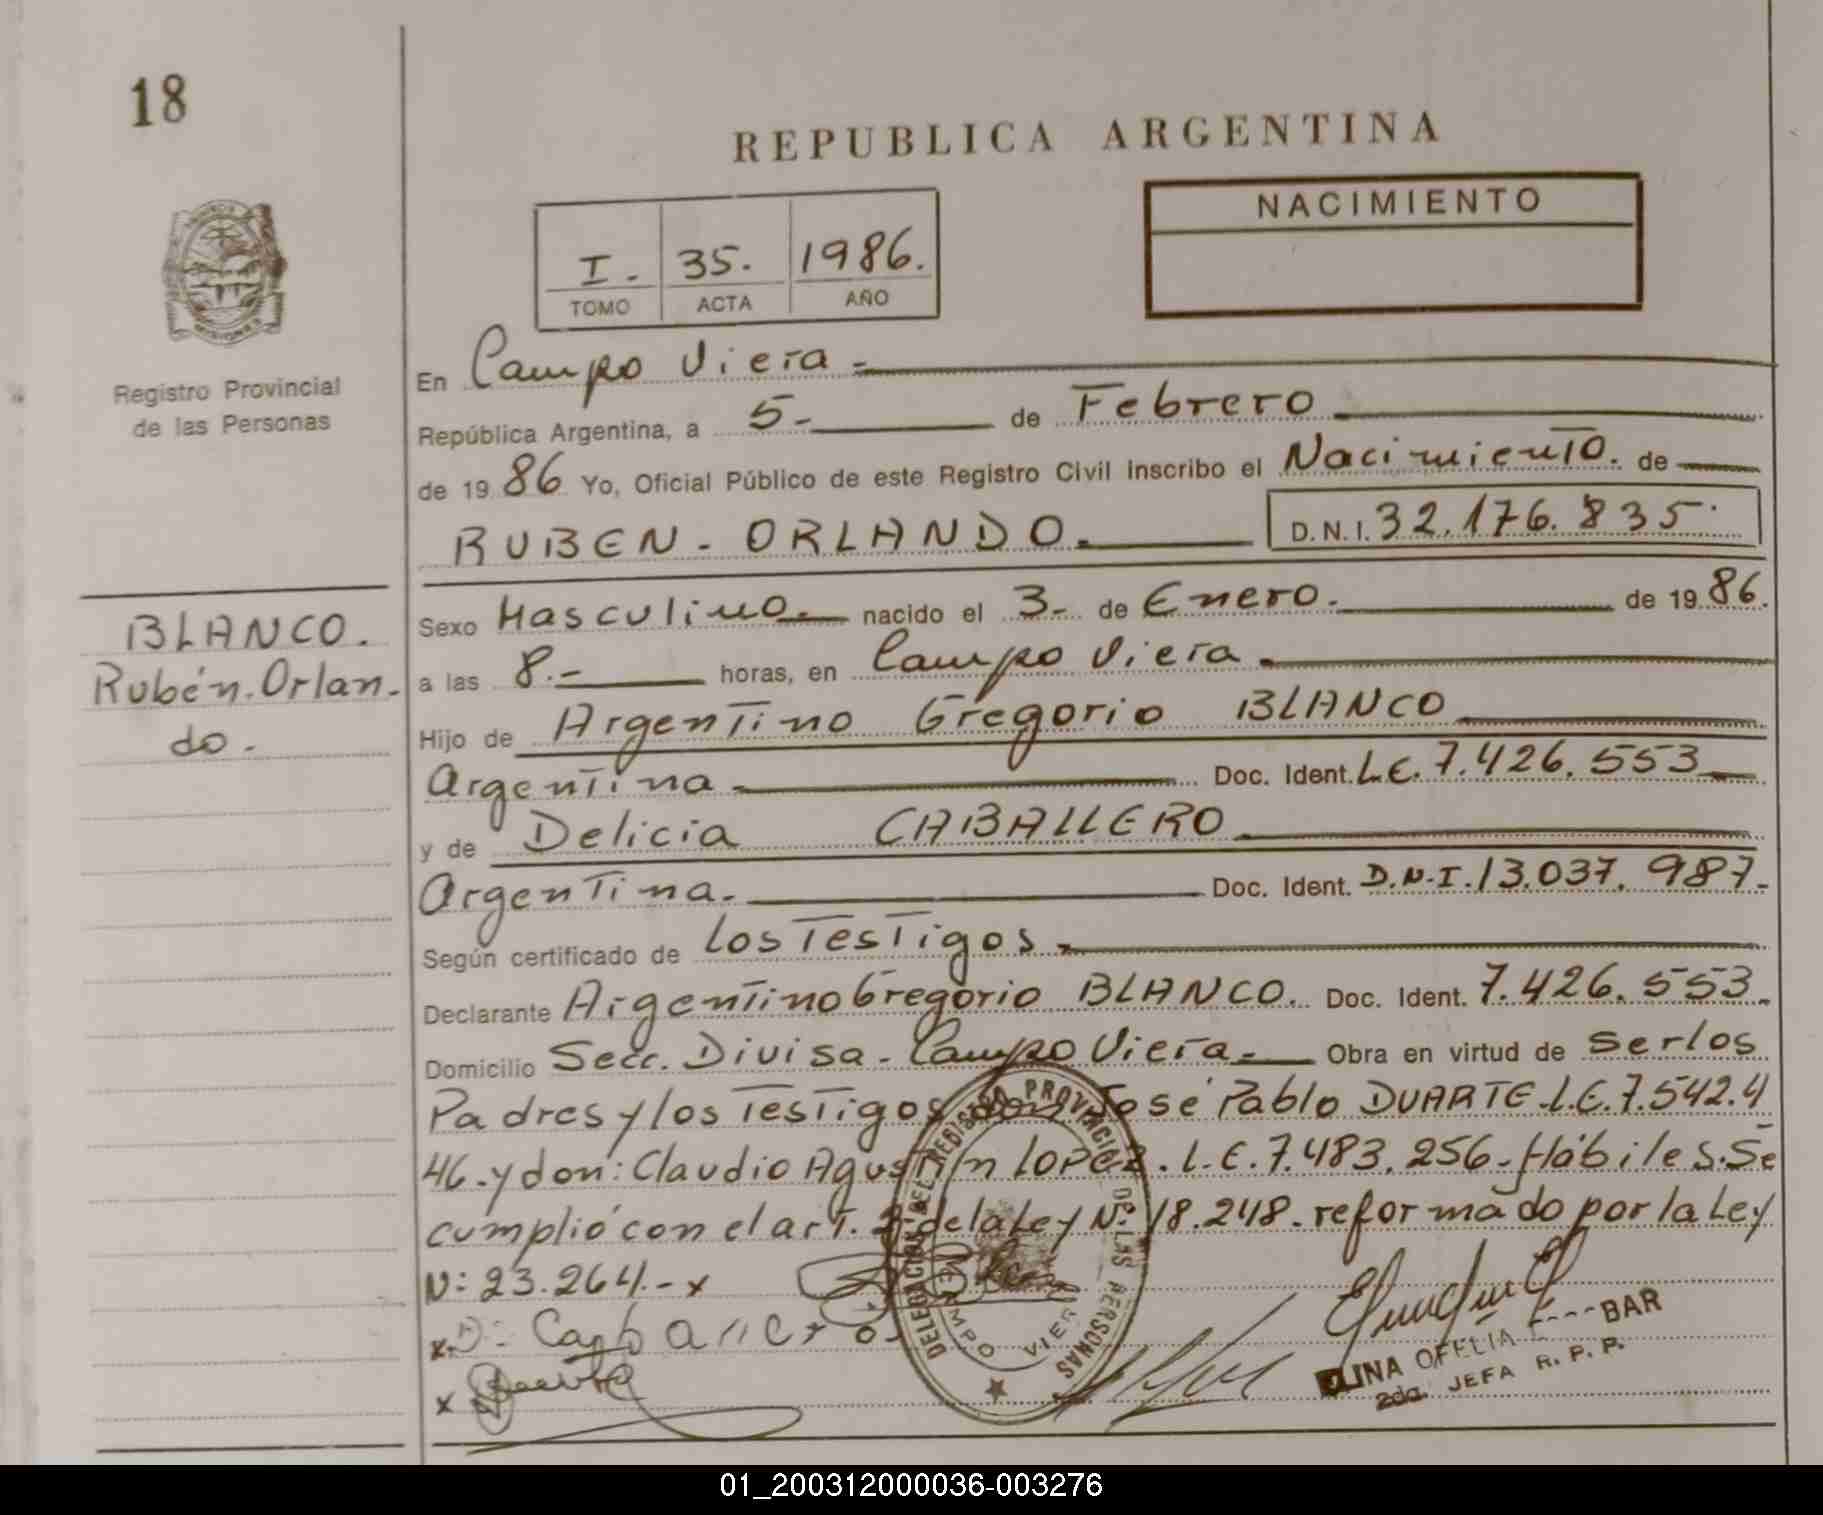 18
REPUBLICA ARGENTINA
NACIMIENTO
I. 35. 1986.
TOMO ACTA AÑO
MISIONES
Registro Provincial
de las Personas
En Campo Viera -
República Argentina, a 5.- de Febrero
de 19 86 Yo, Oficial Público de este Registro Civil inscribo el Nacimiento. de
RUBEN - ORLANDO. D.N.I. 32.176.835.
BLANCO.
Rubén. Orlan-
do -
Sexo Masculino. nacido el 3.- de Enero. de 19 86.
a las 8.- horas, en Campo Viera.
Hijo de Argentino Gregorio BLANCO
Argentina Doc. Ident. L.E. 7.426.553
y de Delicia CABALLERO
Argentina. Doc. Ident. D.N.I. 13.037.987-
Según certificado de los Testigos
Declarante Argentino Gregorio BLANCO. Doc. Ident. 7.426.553.
Domicilio Secc. Divisa - Campo Viera - Obra en virtud de ser los
Padres y los Testigos don José Pablo DUARTE. L.E. 7.542.4
46. y don: Claudio Agustín LOPEZ. L.E. 7.483.256. Hábiles. Se
cumplió con el art. 2 de la Ley Nº 18.248. reformado por la Ley
N: 23.264.- x
x D: Caballero
x
DELEGACION DEL REGISTRO PROVINCIAL DE LAS PERSONAS
CAMPO VIERA
OFELIA BAR
2da. JEFA R. P. P.
01_200312000036-003276